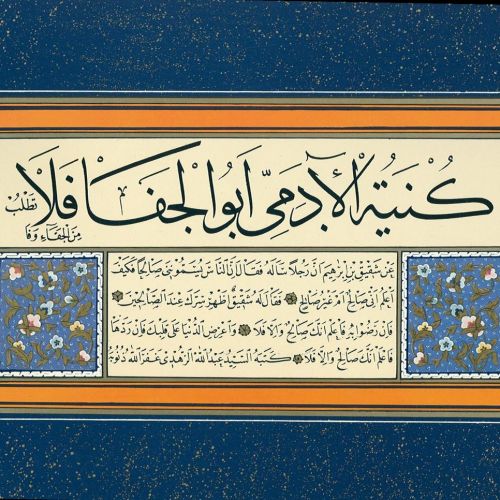 كُنْيَةُ الْآدَمِيِّ أَبُو الْجَفَا فَلَا تَطْلُبْ
مِنَ الْجَفَاءِ وَفَا
عن شقيق بن إبرهيم أن رجلا سأله فقال إن الناس يسمونني صالحا فكيف
أعلم أني صالح أم غير صالح فقال له شقيق أظهر سرك عند الصالحين
فإن رضوا به فاعلم أنك صالح وإلا فلا وأعرض الدنيا على قلبك فإن ردها
فاعلم أنك صالح وإلا فلا كتبه السيد عبد الله الزهدي غفر الله ذنوبه